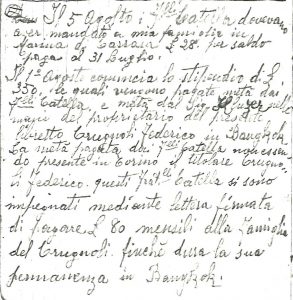 Il 5 Agosto i F.lli Catella dovevano
aver mandato a mia famiglia in
Marina di Carrara £ 28. per saldo
paga al 31 Luglio.
Il 1° Agosto comincia lo stipendio di £
350, le quali vengono pagate metà dai
F.lli Catella, e metà dal Sig. nelle
mani del proprietario del presente
libretto Crugnoli Federico in Bangkok
La metà pagata dai F.lli Catella non essen-
do presente in Torino il titolare Crugno-
li Federico. questi Frat.lli Catella si sono
impegnati mediante lettera firmata
di pagare £ 80 mensili alla famiglia
del Crugnoli. finchè dura la sua
permanenza in Bangkok.